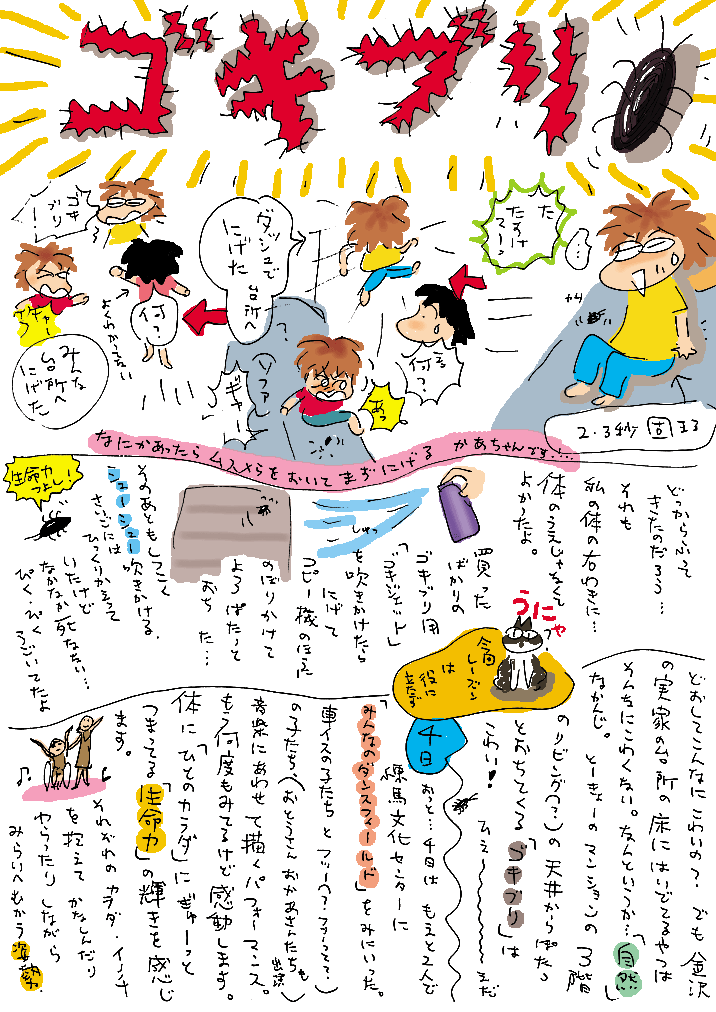 ゴキブリ
たすけてー!
…
2.3秒固まる
え
何?
あっ
ギャー
(ソファ)
ダッシュで
台所へ
にげた
何?
よくわかってない
ゴキブリー!
ギャー
みんな
台所へ
にげた
なにかあったら ムスメらをおいて まずにげる かあちゃんです!…
どっからふって
きたのだろう…
それも
私の体の右わきに…
体のうえじゃなくて
よかったよ。
買った
ばかりの
ゴキブリ用
「ゴキジェット」
を吹きかけたら
にげて
コピー機のほうに
のぼりかけて
よろけたって
おちた…
しゅっ
そのあともしつこく
シューシュー吹きかける。
さいごには
ひっくりかえって
いたけど
なかなか死なない…
ぴく・ぴく
うごいてたよ
生命力
つよし!
うにゃ
今回
レーズン
は
役に
立たず
どおしてこんなに こわいの? でも 金沢
の実家の台所の床にはいでてるやつは
そんなにこわくない。なんというか…「自然」
なかんじ。とーきょーのマンションの3階
のリビング(?)の天井からぱたっ
とおちてくる「ゴキブリ」は
こわい!
ひえ〜〜〜〜えだ
4日
おっと…4日は もえと2人で
練馬文化センターに
「みんなのダンスフィールド」をみにいった。
車イスの子たちと フツー(?フツーって?)
の子たち、(おとうさんおかあさんたちも出演)
音楽にあわせて描くパフォーマンス。
もう何度もみてるけど感動します。
体に「ひとのカラダ」にぎゅーっと
つまってる「生命力」の輝きを感じ
ます。
それぞれのカラダ・イノチ
を抱えて かなしんだり
やらったりしながら
みらいへむかう姿勢.